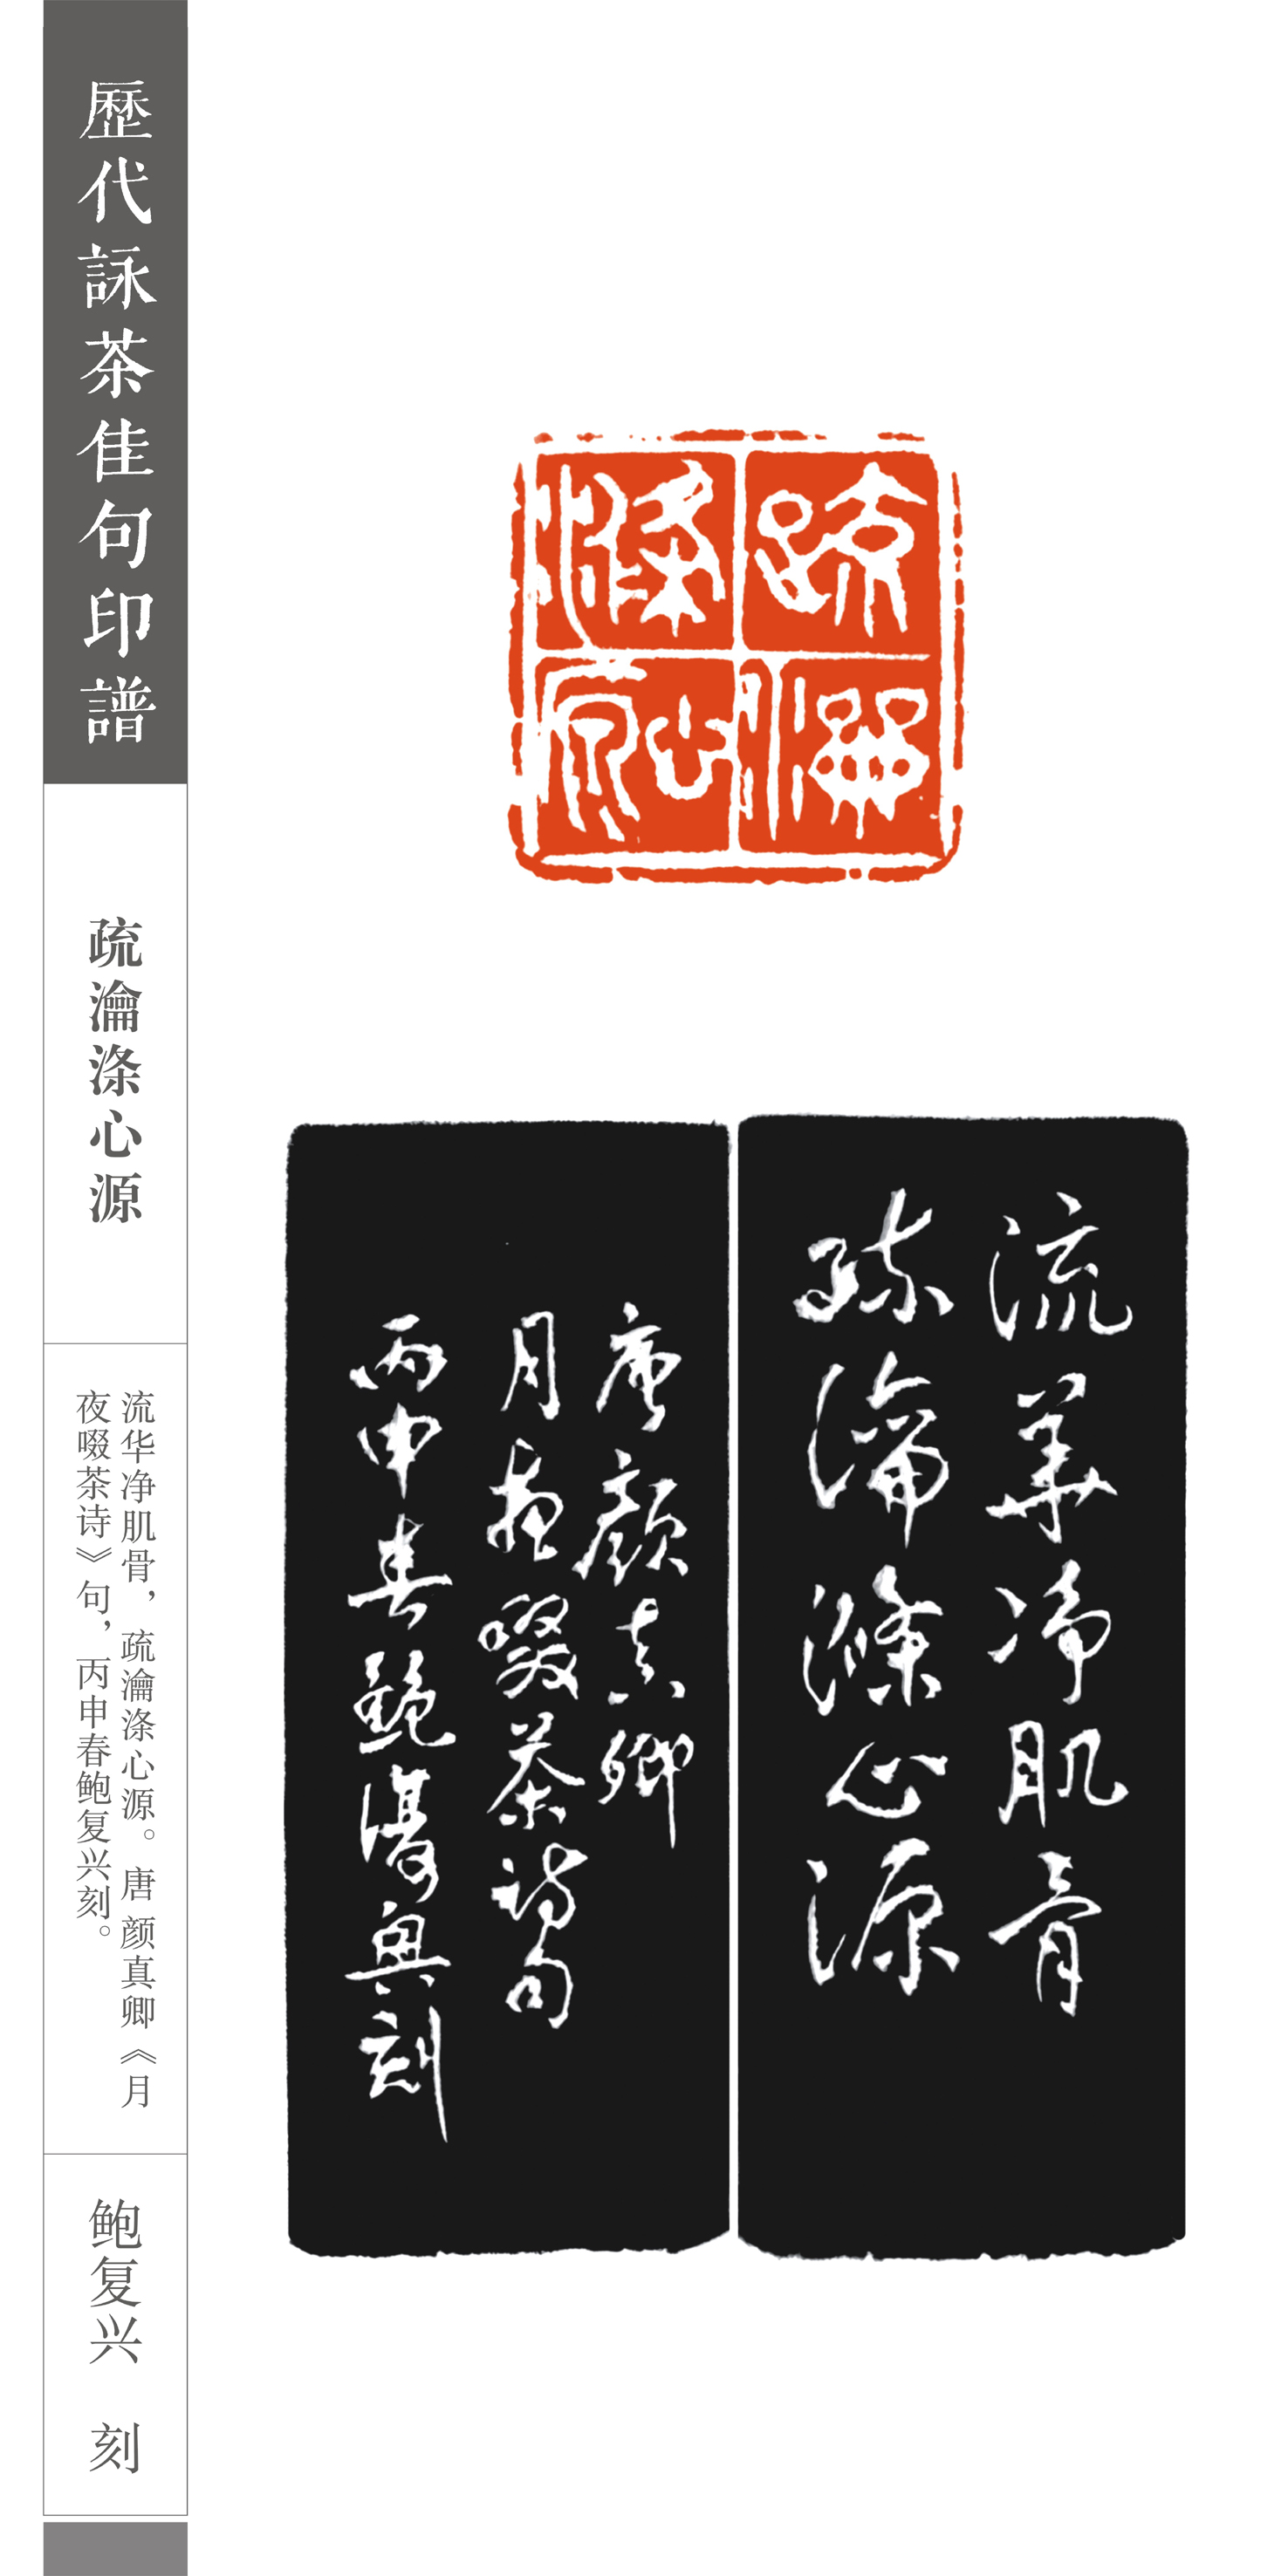 歷代詠茶佳句印譜
疏瀹涤心源
流华净肌骨，疏瀹涤心源。唐 颜真卿《月
夜啜茶诗》句，丙申春鲍复兴刻。
鲍复兴 刻
疏瀹
滌心源
流華净肌骨
疏瀹滌心源
唐顏真卿
月夜啜茶詩句
丙申春鮑復興刻